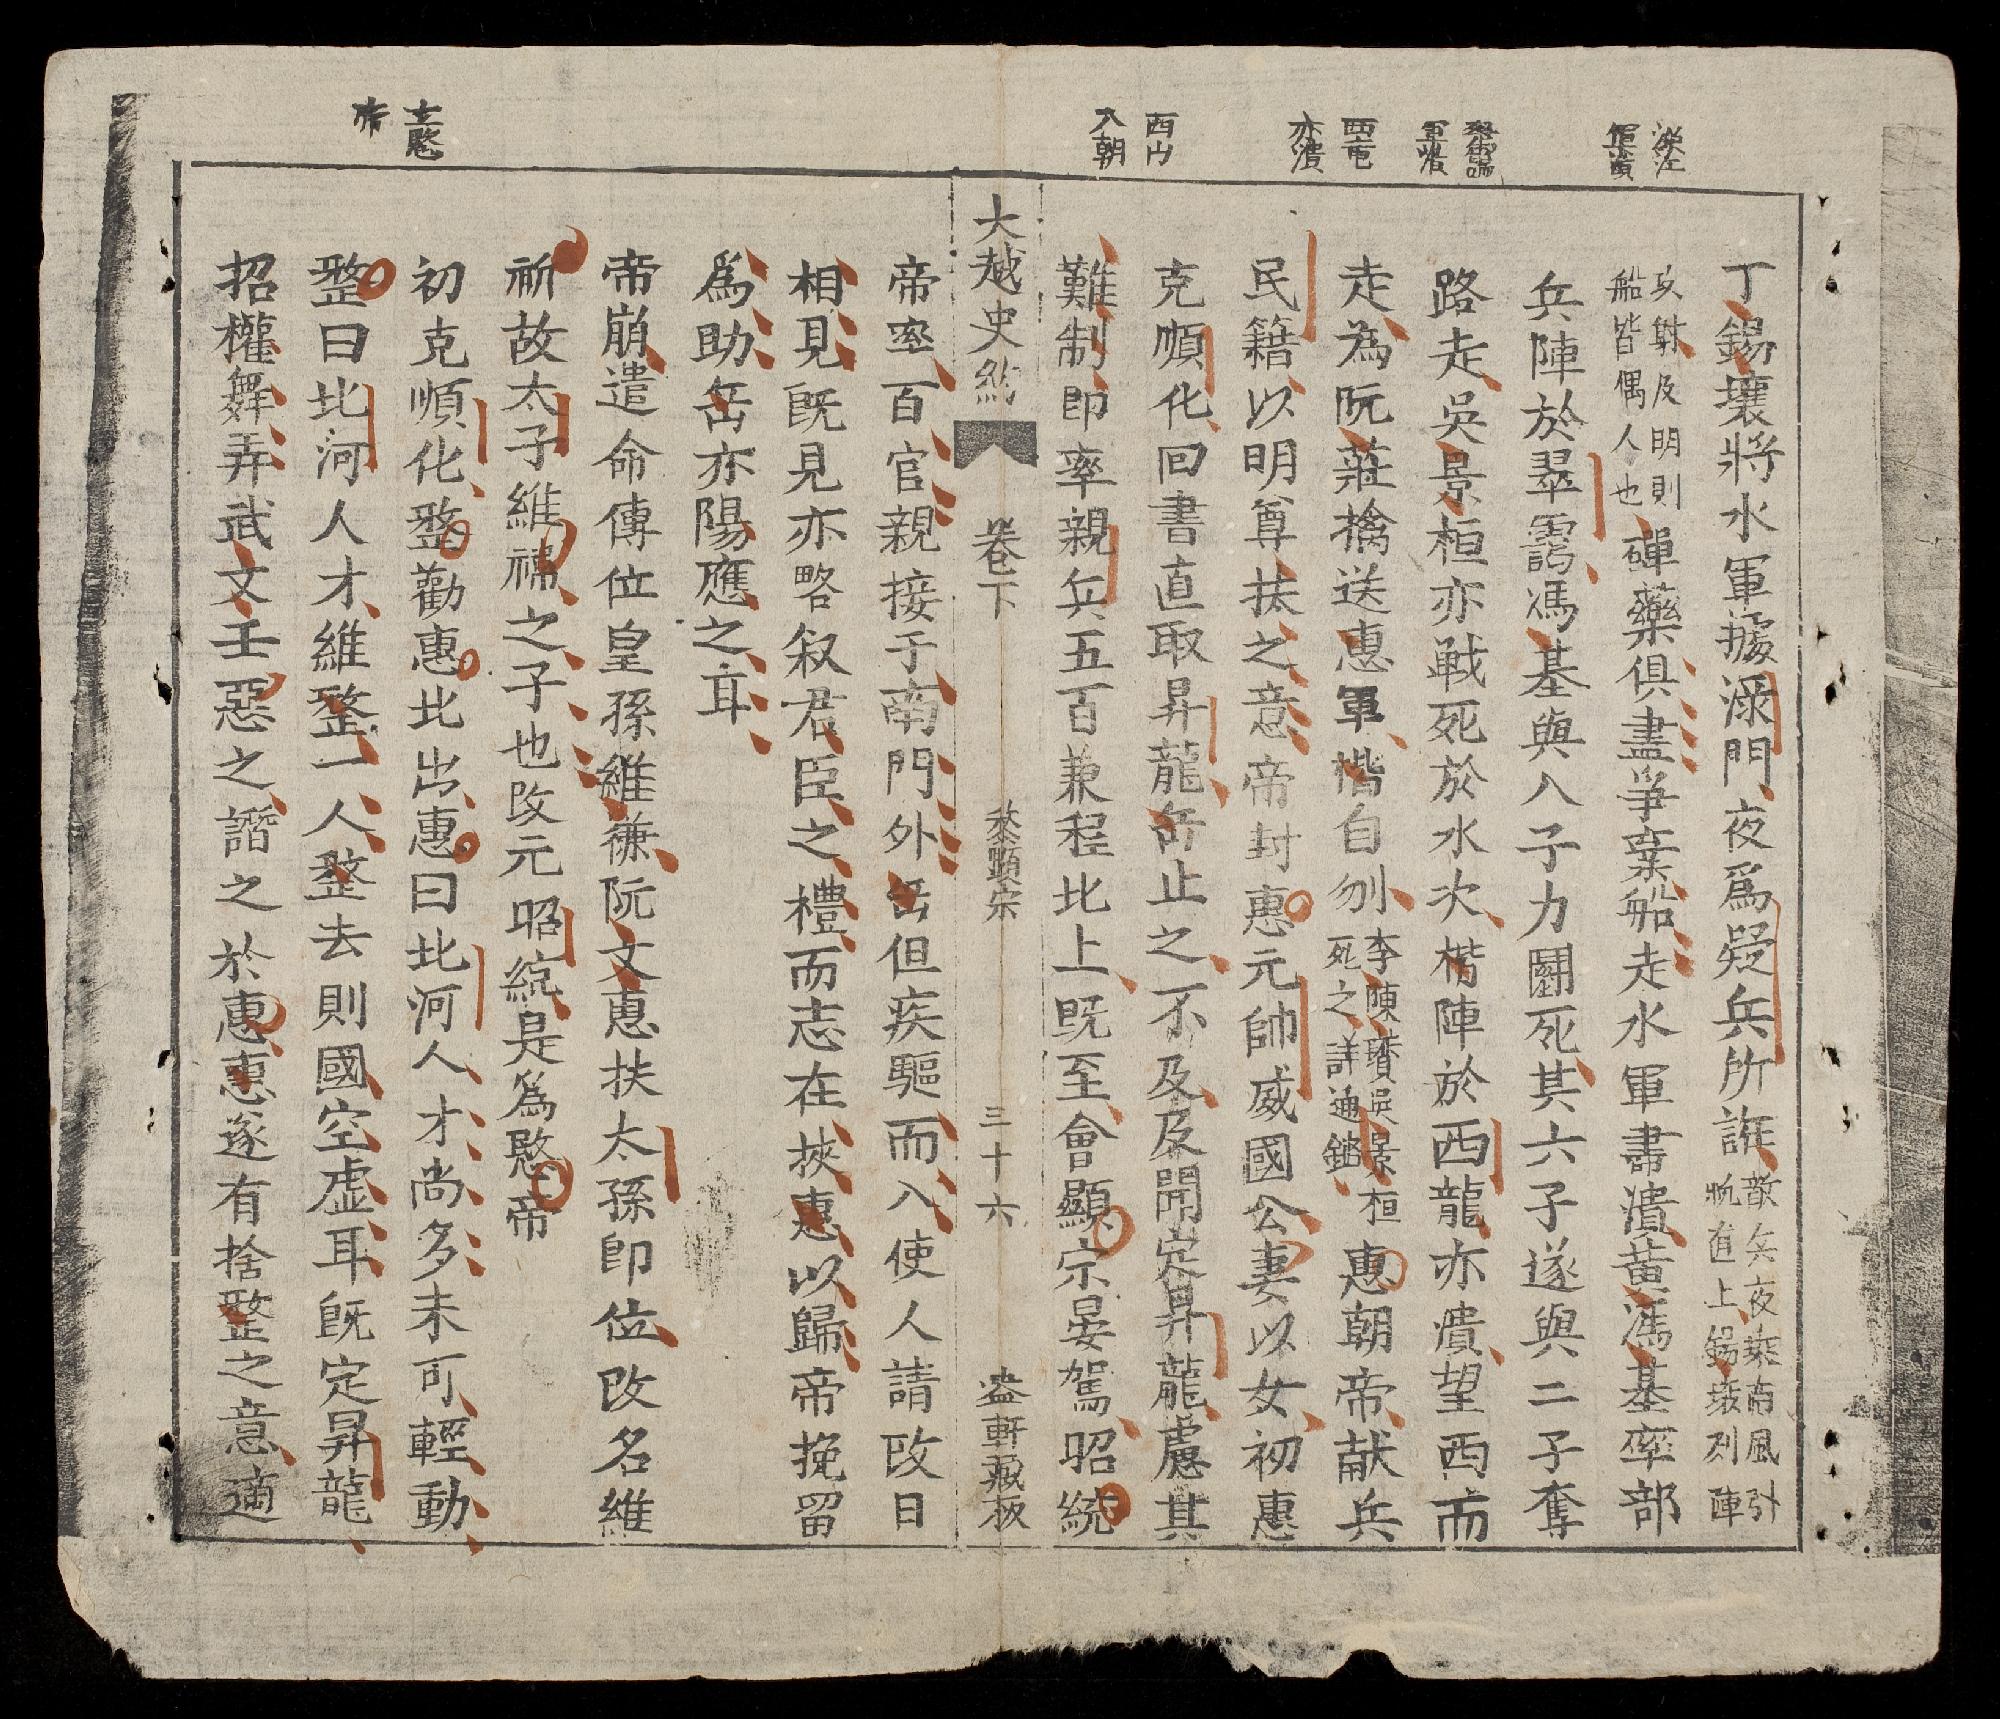 丁錫壤將水軍據淥門夜爲疑兵所誑
敵兵夜乘南風引
帆直上錫壤列陣
攻射及明則
船皆偶人也
磾藥俱盡爭棄船走水軍書潰黄馮基率部
兵陣於翠靄馮基與八子力鬪死其六子遂與二子奪
路走吳景桓亦戰死於水次楷陣於西龍亦潰望西而
走為阮莊擒送惠軍楷自刎
李陳瓚吳景桓
死之詳通鑑
惠朝帝献兵
民籍以明尊扶之意帝封惠元帥威國公妻以女初惠
克順化回書直取昇龍岳止之不及及聞定昇龍慮其
難制即率親兵五百兼程北上既至會顯宗晏駕昭統
大越史約 卷下 黎顯宗 三十六 盎軒藏板
帝率百官親接于南門外岳但疾驅而入使人請改日
相見見既見亦略叙君臣之禮而志在挾惠以歸帝挽留
爲助岳亦陽應之耳
帝崩遣命傳位皇孫維𥙿阮文惠扶太孫即位改名維
祈故太子維禕之子也改元昭統是爲愍帝
初克順化整勸惠北出惠曰北河人才尚多未可輕動
整曰北河人才維整一人整去則國空虚耳既定昇龍
招權舞弄武文壬惡之譖之於惠惠遂有捨整之意適
軍潰
西屯
亦潰
西山
入朝
立愍
帝